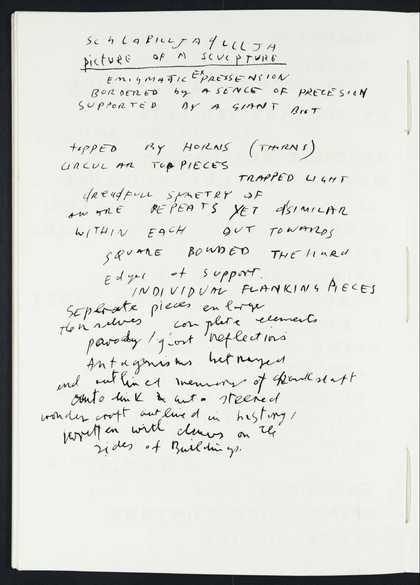 picture OF A SCULPTURE
ENIGMATIC EXPRESSENSION
BORDERED by A SENCE OF PRECESION
SUPPORTED BY A GIANT BOOT
TOPPED BY HORNS (THORNS)
CIRCULAR TOPPIECES
TRAPPED LIGHT
dreadfull SYMETRY OF
REPEATS YET dSIMILAR
WITHIN EACH OUT TOWARDS
SQUARE BOUNDED THE Hard
Edges of SUPPORT.
INDIVIDUAL FLANKING PIECES
Separate pieces enlarge
themselves complete elements
parody / giant reflections
Antagonisms betrayed
and outlined memories of
onto link
wonder craft outlined in history,
written with on the
sides of Buildings.